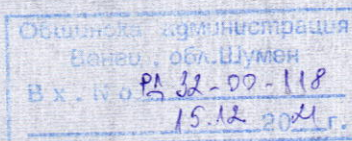 Общинска администрация
Венец, обл. Шумен
Вх. № РД 32-00-118
15.12 20 г.